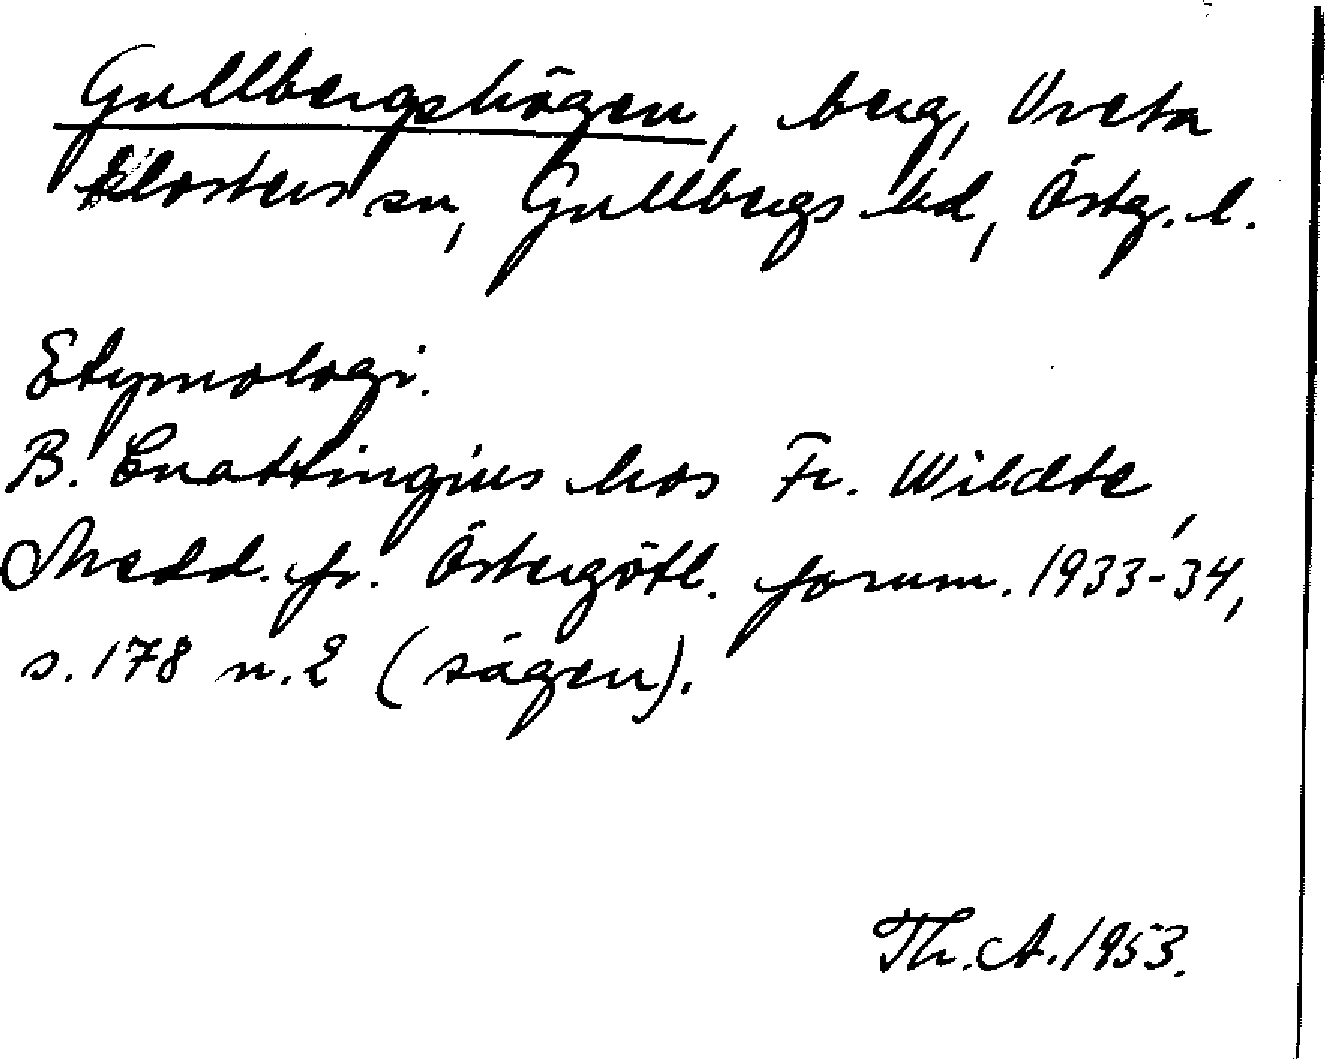 Gullbergshögen, berg, Vreta
klosters sn, Gullbergs hd, Östg. l.
Etymologi.
B. Cnattingius hos Fr. Wildte,
Medd. fr. Östergötl. fornm. 1933-34,
s. 178 n. 2 (sägen).
Th. A. 1953.